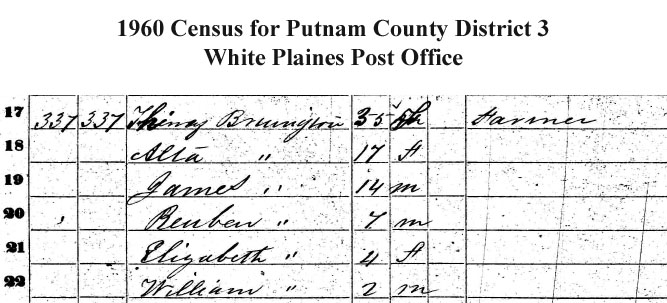 1960 Census for Putnam County District 3
White Plaines Post Office
17 337 337 Henry Brunington 35 m Farmer
18 Alta " 17 f
19 James " 14 m
20 Reuben " 7 m
21 Elizabeth " 4 f
22 William " 2 m